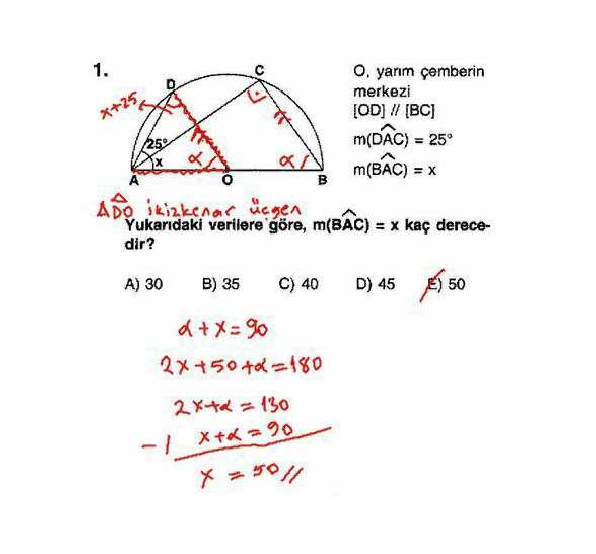 1.
C
D
x+25
25°
x
α
α
A
O
B
O, yarım çemberin
merkezi
[OD] // [BC]
m(DAC) = 25°
m(BAC) = x
ADO ikizkenar üçgen
Yukarıdaki verilere göre, m(BAC) = x kaç derece-
dir?
A) 30 B) 35 C) 40 D) 45 E) 50
α+x=90
2x+50+α=180
2x+α=130
-1 x+α=90
x=50//